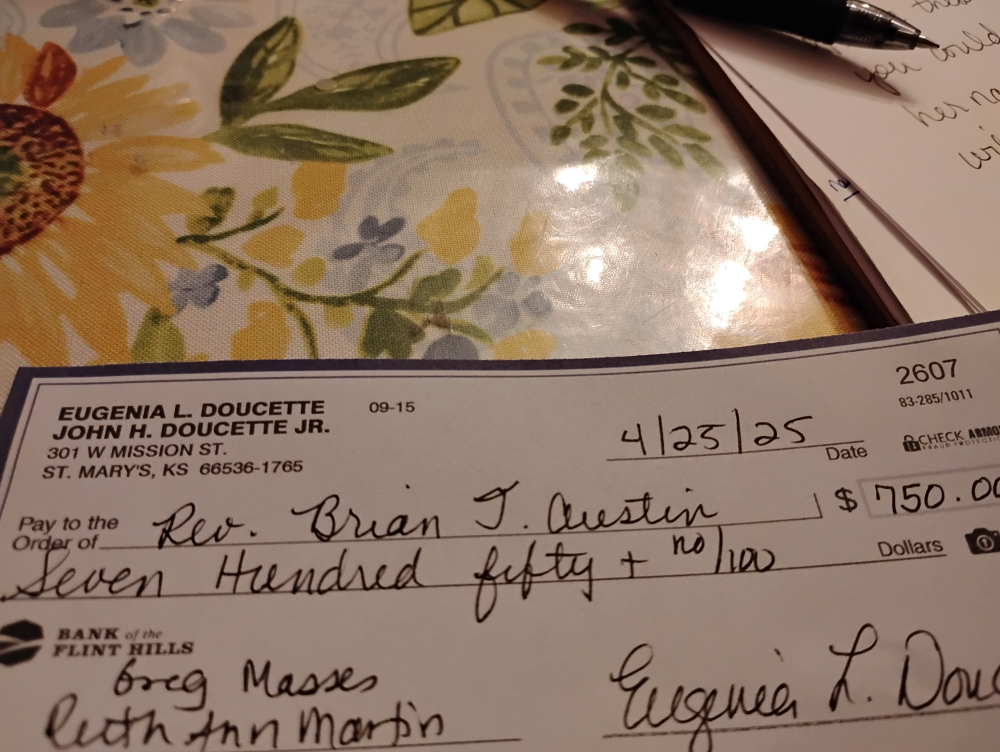 this
you could
her na
wi
2607
83-285/1011
EUGENIA L. DOUCETTE 09-15
JOHN H. DOUCETTE JR.
301 W MISSION ST.
ST. MARY'S, KS 66536-1765
4/23/25
Date
CHECK ARMO
Pay to the
Order of Rev. Brian J. Austin $ 750.00
Seven Hundred fifty + no/100 Dollars
BANK of the
FLINT HILLS
Greg Masses
Ruth Ann Martin
Eugenia L. Douc